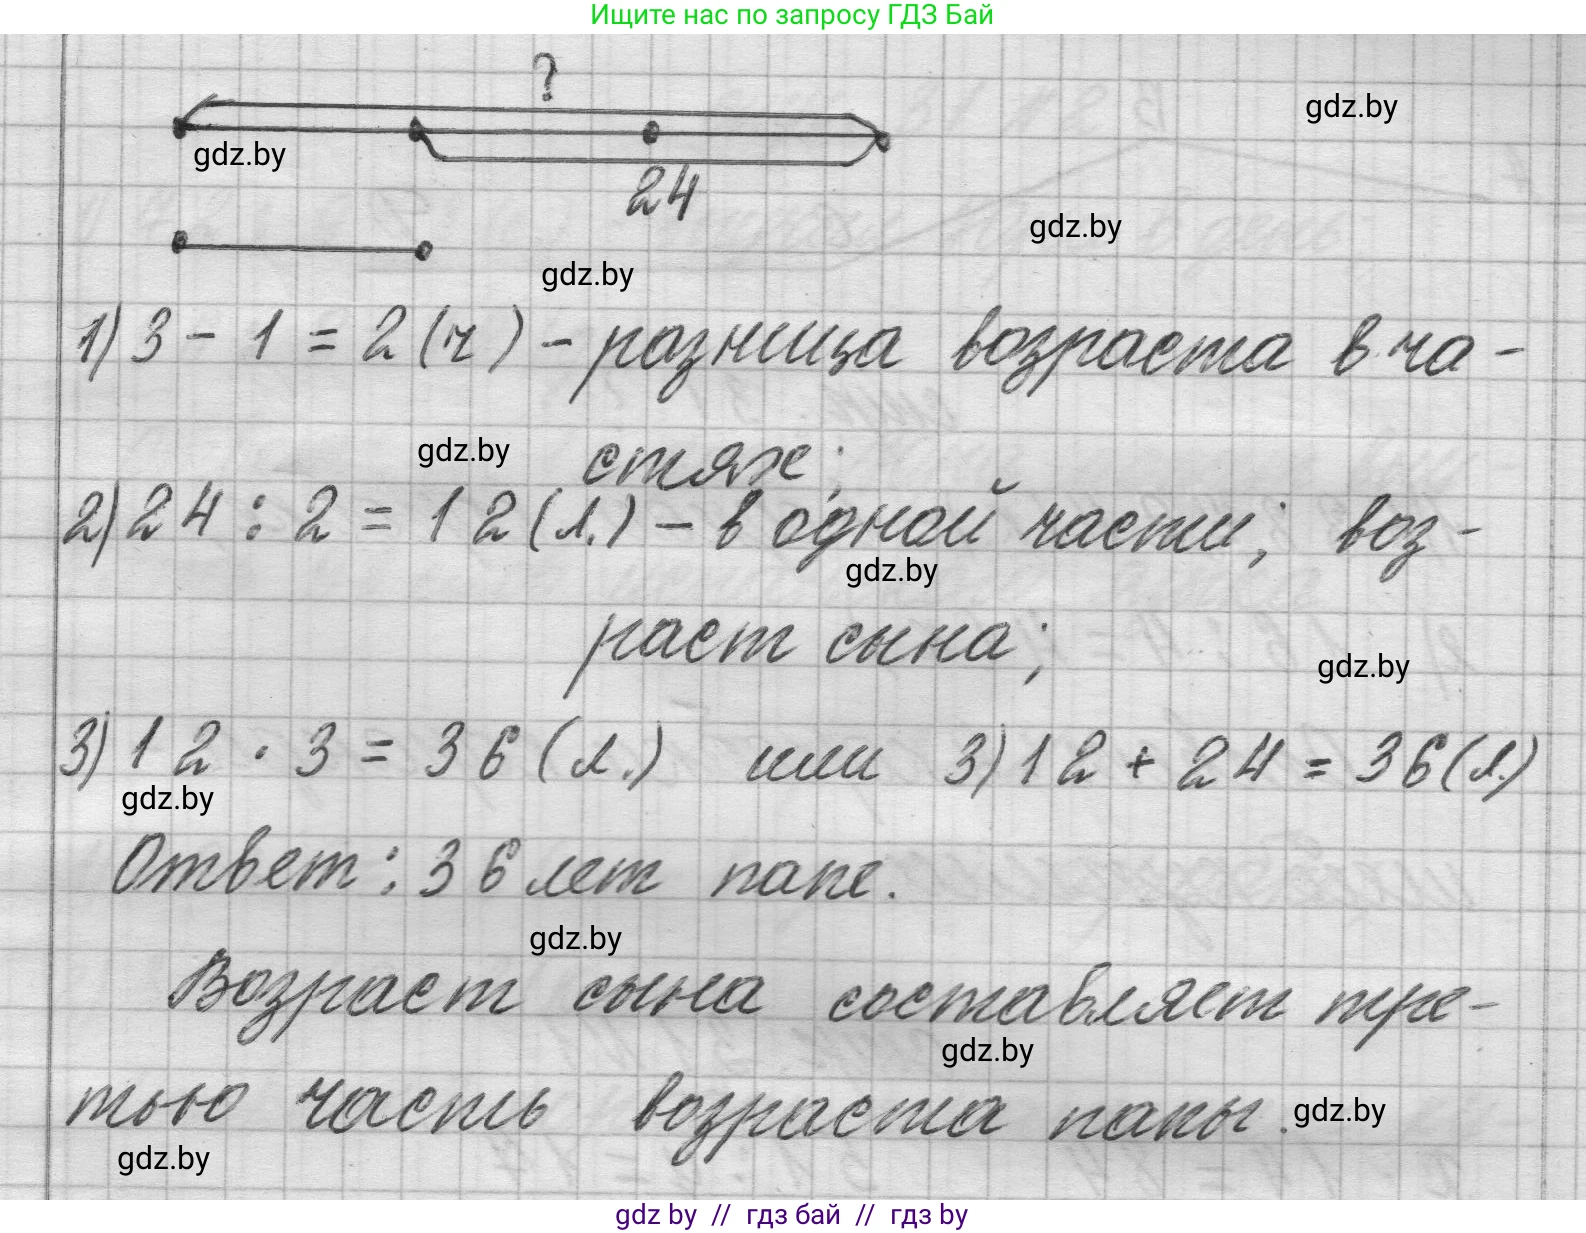 Ищите нас по запросу ГДЗ Бай
?
gdz.by
gdz.by
24
gdz.by
gdz.by
1) 3 - 1 = 2 (ч) - разница возраста в ча-
gdz.by
стях;
2) 24 : 2 = 12 (л.) - в одной части; воз-
gdz.by
раст сына;
gdz.by
3) 12 · 3 = 36 (л.) или 3) 12 + 24 = 36 (л.)
gdz.by
Ответ: 36 лет папе.
gdz.by
Возраст сына составляет тре-
gdz.by
тью часть возраста папы.
gdz.by
gdz.by
gdz by // гдз бай // гдз by